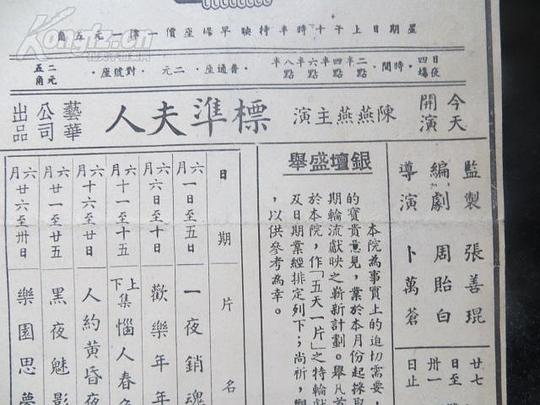 星期日上午十時半特映早場座價一律一元五角
日夜四場
時間・二點半 四點半 六點半 八點半
普通座・二元
對號座・二元五角
今天開演
陳燕燕主演
標準夫人
藝華公司出品
監製 張善琨
編劇 周貽白
導演 卜萬蒼
廿七
日至
卅一
日止
銀壇盛舉
本院為事實上的迫切需要，
的寶貴意見，業於本月份起採取
期輪流獻映之新計劃。舉凡首
於本院，作「五天一片」之特輪獻
及日期業經排定列下；尚祈，觀
，以供參考為幸。
日期 片名
六月一日至五日 一夜銷魂
六月六日至十日 歡樂年年
六月十一至十五 上下集 惱人春色
六月十六至廿日 人約黃昏後
六月廿一至廿五 黑夜魅影
六月廿六至卅日 樂園思夢